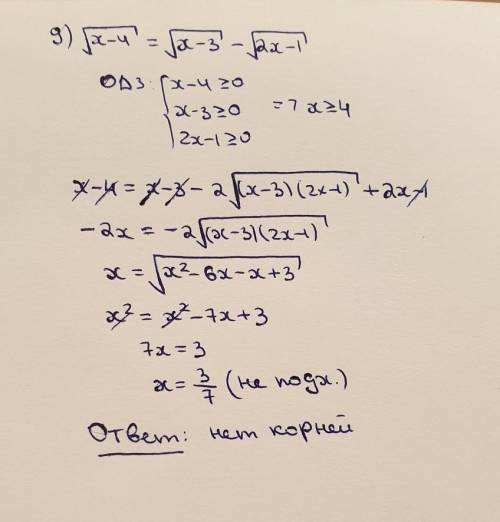 9) √(x-4) = √(x-3) - √(2x-1)
ОДЗ: { x-4≥0
x-3≥0 => x≥4
2x-1≥0
x-4 = x-3 - 2√((x-3)(2x-1)) + 2x-1
-2x = -2√((x-3)(2x-1))
x = √(x²-6x-x+3)
x² = x²-7x+3
7x = 3
x = 3/7 (не подх.)
Ответ: нет корней